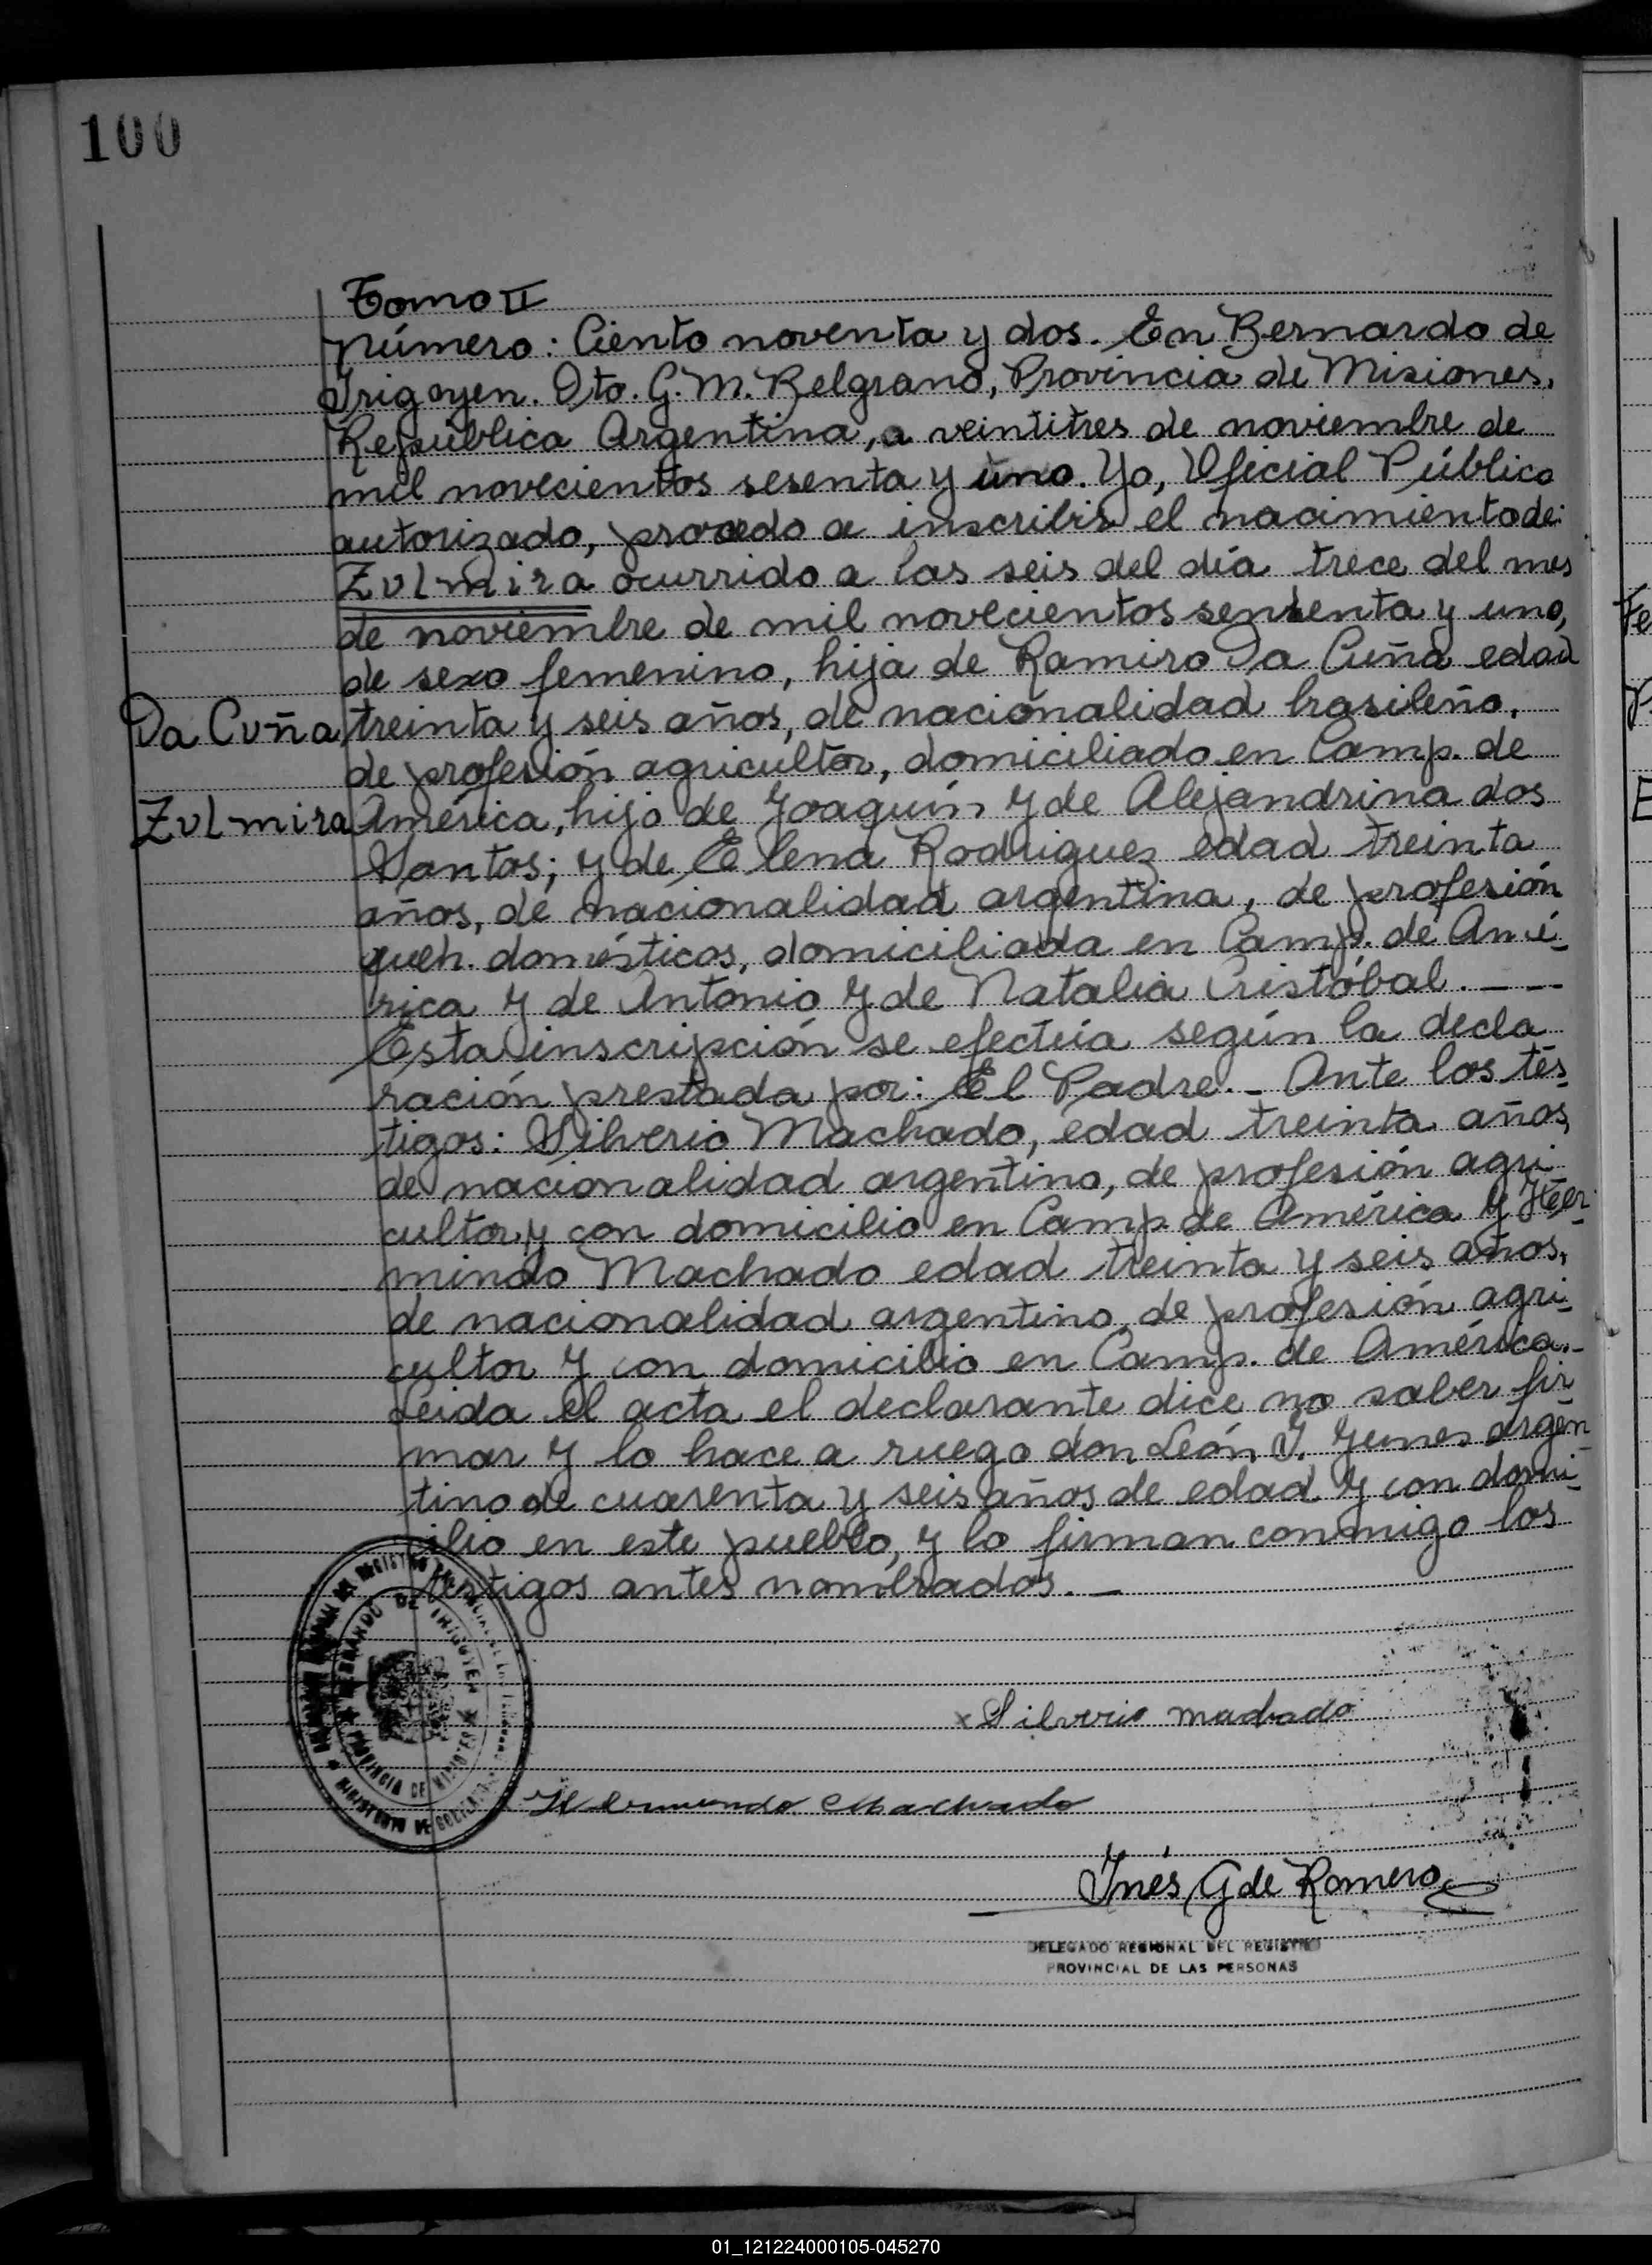 100
Tomo II
Número: Ciento noventa y dos. En Bernardo de
Irigoyen. Dto. G. M. Belgrano, Provincia de Misiones,
República Argentina, a veintitres de noviembre de
mil novecientos sesenta y uno. Yo, Oficial Público
autorizado, procedo a inscribir el nacimiento de:
Zulmira ocurrido a las seis del día trece del mes
de noviembre de mil novecientos sensenta y uno,
de sexo femenino, hija de Ramiro Da Cuña edad
Da Cuña, treinta y seis años, de nacionalidad brasileño,
de profesión agricultor, domiciliado en Camp. de
Zulmira América, hijo de Joaquín y de Alejandrina dos
Santos; y de Elena Rodriguez edad treinta
años, de nacionalidad argentina, de profesión
queh. domésticos, domiciliada en Camp. de Amé-
rica y de Antonio y de Natalia Cristóbal. _ _ _
Esta inscripción se efectúa según la decla
ración prestada por: El Padre. _ Ante los tes-
tigos: Silverio Machado, edad treinta años,
de nacionalidad argentino, de profesión agri-
cultor y con domicilio en Camp. de América y Her-
mindo Machado edad treinta y seis años,
de nacionalidad argentino, de profesión agri-
cultor y con domicilio en Camp. de América. _
Leida el acta el declarante dice no saber fir
mar y lo hace a ruego don León J. Yunes argen
tino de cuarenta y seis años de edad y con domi-
cilio en este pueblo, y lo firman conmigo los
testigos antes nombrados. _
BERNARDO DE IRIGOYEN
PROVINCIA DE MISIONES
x Silverio machado
Hermindo Machado
Inés G de Romero
DELEGADO REGIONAL DEL REGISTRO
PROVINCIAL DE LAS PERSONAS
01_121224000105-045270